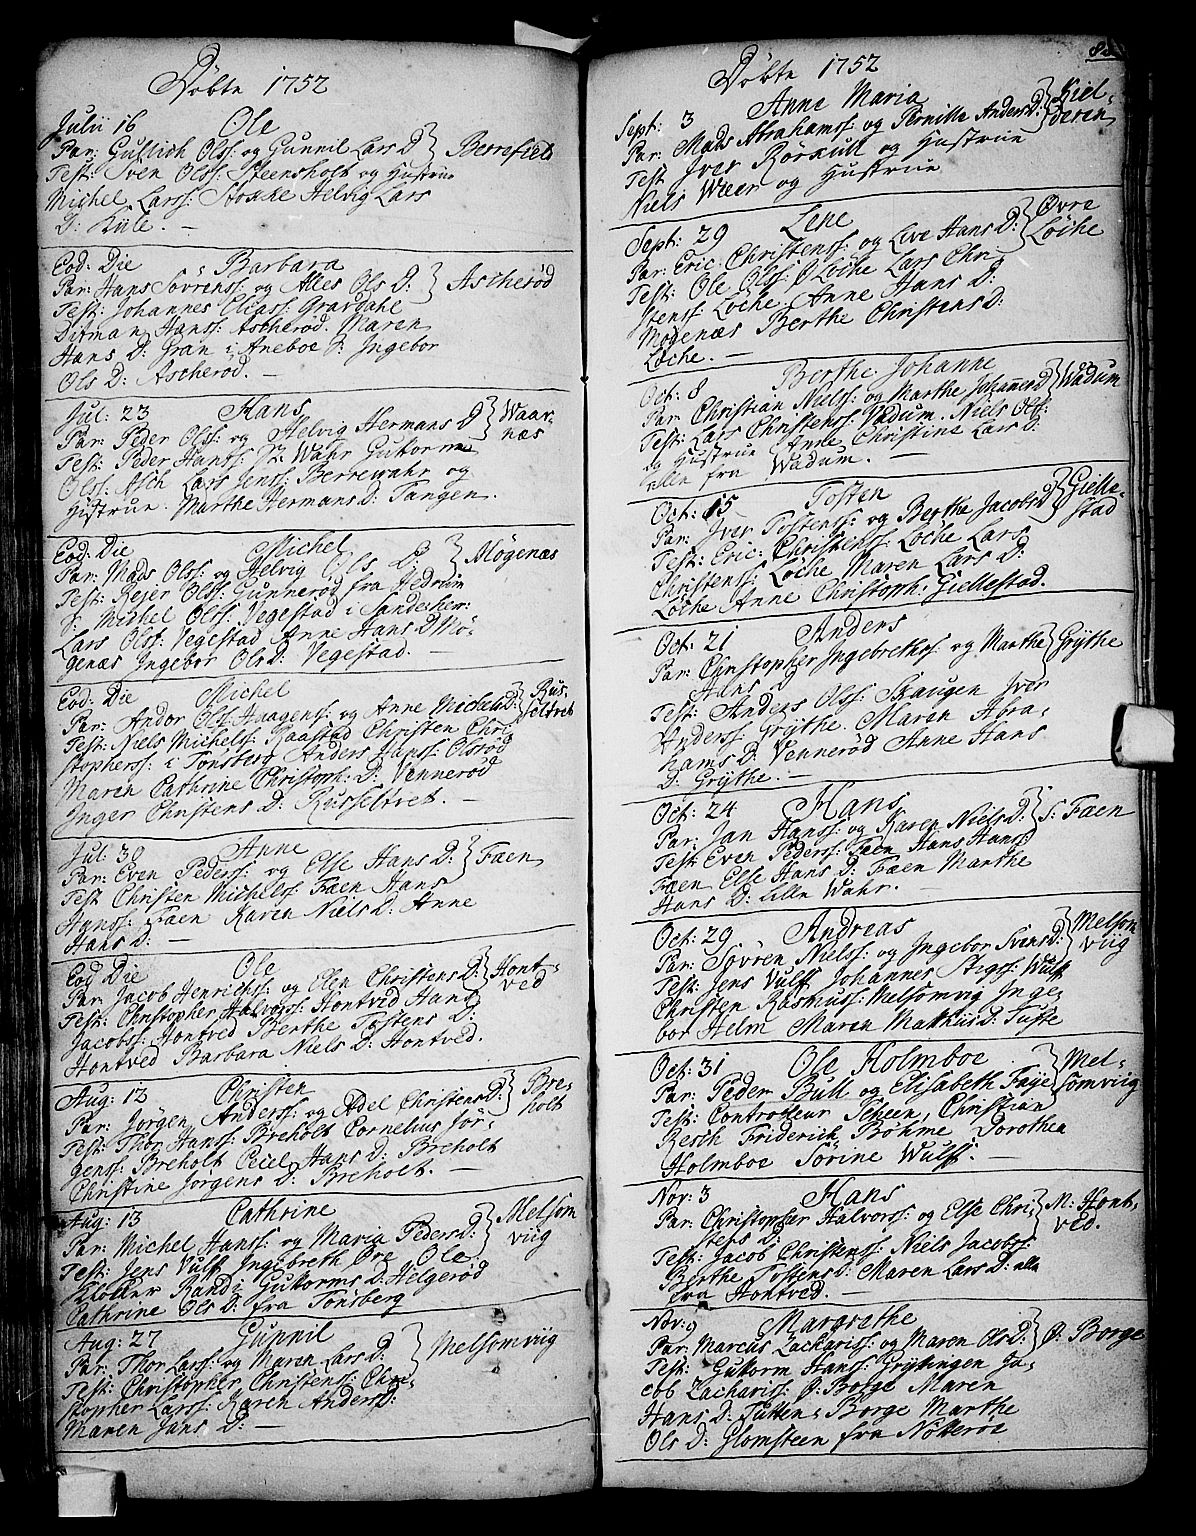 Döbte 1752
Julii 16 Ole
Par: Gullich Olss: og Gunnil Lars D } Berrefield
Test: Sven Olss: Steensholt og Hustrue
Michel Larss: Stokke Helvig Lars
D: Kiile. —
Eod: Die Barbara
Par: Hans Sövrenss: og Alles Ols D: } Ascherød
Test: Johannes Eliass: Gravdahl
Ditman Hanss: Ascherød. Maren
Hans D: Gran i Aneboe S: Ingebor
Ols D: Ascherød. —
Jul: 23 Hans
Par: Peder Olss: og Helvig Hermans D } Waar-
næs
Test: Peder Hanss: Wahr Gutorm
Olss: Asch Lars Jenss: Berrewahr og
Hustrue. Marthe Hermans D: Tangen.
Eod: Die Michel
Par: Mads Olss: og Helvig Ols D } Møgenæs
Test: Rejer Olss: Gunnerød fra Hedrum
S: Michel Olss: Vegestad i Sandeher:
Lars Olss: Vegestad Anne Hans D Mø-
genæs Ingebor Ols D: Vegestad. —
Eod: Die Michel
Par: Andor Olss Haagenss: og Anne Michels D: } Rus-
seltvet
Test: Niels Michelss: Raastad Christen Chri
stopherss: i Tonsberg Anders Hanss: Olsrød
Maren Cathrine Christoph: D: Vennerød
Inger Christens D: Russeltvet. —
Jul: 30 Anne
Par: Even Pederss: og Else Hans D: } Faen
Test Christen Michelss: Faen Hans
Hanss: Faen Karen Niels D: Anne
Hans D: —
Eod Die Ole
Par: Jacob Henrichss: og Elen Christens D: } Hont-
ved
Test: Christopher Halvorss: Hontved Hans
Jacobss: Hontved Berthe Tostens D:
Hontved Barbara Niels D: Hontved.
Aug: 12 Christen
Par: Jörgen Anderss: og Adel Christens D: } Bre-
holt
Test: Thor Hanss: Breholt Cornelius Jör-
genss: Breholt Cecil Hans D: Breholt
Christine Jorgens D: Breholt. —
Aug: 13 Cathrine
Par: Michel Hanss: og Maria Peders D: } Melsom
viig
Test: Jens Vulff Ingebreth Öre Ole
Kloller Randi Guttorms D: Helgerød
Cathrine Ols D: fra Tönsberg
Aug: 27 Gunnil
Par: Thor Larss: og Maren Lars D: } Melsomviig
Test: Christopher Christenss: Chri-
stopher Larss: Karen Anders D:
Maren Jans D: —
Döbte 1752
Sept: 3 Anne Maria
Par: Mads Abrahamss: og Pernille Anders D: } Kiel-
deren
Test Iver Rörkull og Hustrue
Niels Weer og Hustrue
Sept: 29 Lene
Par: Eric: Christenss: og Live Hans D: } Øvre
Løche
Test: Ole Olss: Ø Løche Lars Chri
stenss: Løche Anne Hans D:
Mogenæs Berthe Christens D:
Løche. —
Oct: 8 Berthe Johanne
Par: Christian Nielss: og Marthe Johannes D } Wadum
Test: Lars Christenss: Vadum. Niels Olss:
og Hustrue Anne Christine Lars D:
alle fra Wadum. —
Oct: 15 Tosten
Par: Iver Tostenss: og Berthe Jacobs D } Gielle-
stad
Test: Eric: Christenss: Løche Lars
Christenss: Løche Maren Lars D:
Løche Anne Christoph: Giellestad.
Oct: 21 Anders
Par: Christopher Ingebrethss: og Marthe } Grythe
Hans D:
Test: Anders Olss: Skaugen Iver
Anderss: Grythe. Maren Abra-
hams D: Vennerød Anne Hans
D: Grythe. —
Oct: 24 Hans
Par: Jan Hanss: og Karen Niels D: } S: Faen
Test: Even Pederss: Faen Hans Hanss:
Faen Else Hans D: Faen Marthe
Hans D: Lille Wahr. —
Oct: 29 Andreas
Par: Sövren Nielss: og Ingebor Svens D: } Melsom
viig
Test: Jens Vulff Johannes Stigss: Wulff
Christen Rasmuss: Melsomvig Inge-
bor Helm Maren Mathius D: Tufte
Oct: 31 Ole Holmboe
Par: Peder Bull og Elisabeth Faye } Mel-
somviig
Test: Controlleur Scheen, Christian
Resch Friderich Böhme Dorothea
Holmboe Sörine Wulff. —
Nov: 3 Hans
Par: Christopher Halvorss: og Else Chri } M: Hont-
ved.
stens D:
Test: Jacob Christenss: Niels Jacobss:
Berthe Tostens D: Maren Lars D: alle
fra Hontved. —
Nov: 9 Margrethe
Par: Marcus Zachariss: og Maren Ols D: } Ø: Borge
Test: Guttorm Hanss: Grystingen Ja-
cob Zachariss: Ø: Borge Maren
Hans D: Tutten: Borge Marthe
Ols D: Glomsteen fra Nötterøe